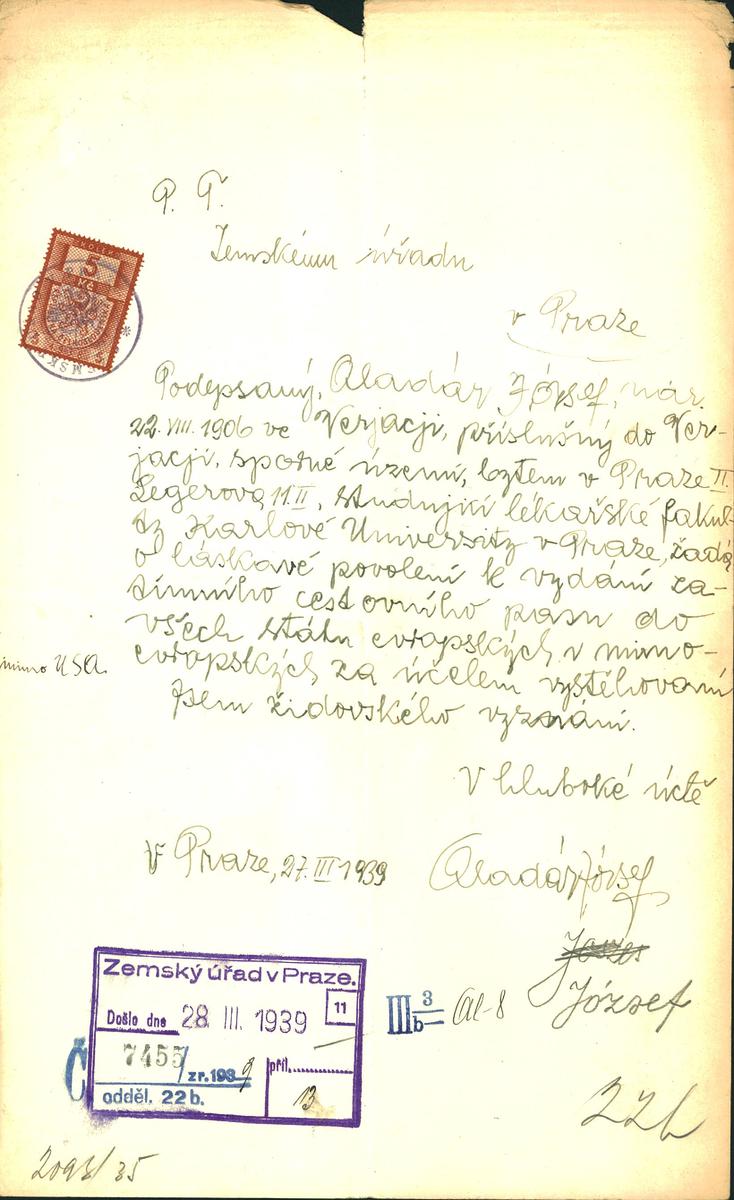 P. T.
Zemskému úřadu
v Praze
KOLEK
5
Kč
Podepsaný, Aladár József, nar.
22. VIII. 1906 ve Verjacji, příslušný do Ver-
jacji, sporné území, bytem v Praze II.
Legerova 11. II, studující lékařské fakul-
ty Karlové University v Praze, žádá
o láskavé povolení k vydání za-
tímního cestovního pasu do
všech státu evropských v mimo-
evropských za účelem vystěhovaní
mimo USA.
Jsem židovského vyznání.
V hluboké úctě
V Praze, 27. III 1939
Aladár József
József
Zemský úřad v Praze.
11
Došlo dne 28 III. 1939
Č 7455/ zr. 1939
příl.
13
odděl. 22 b.
III 3/b Al-8
22b
2093/35